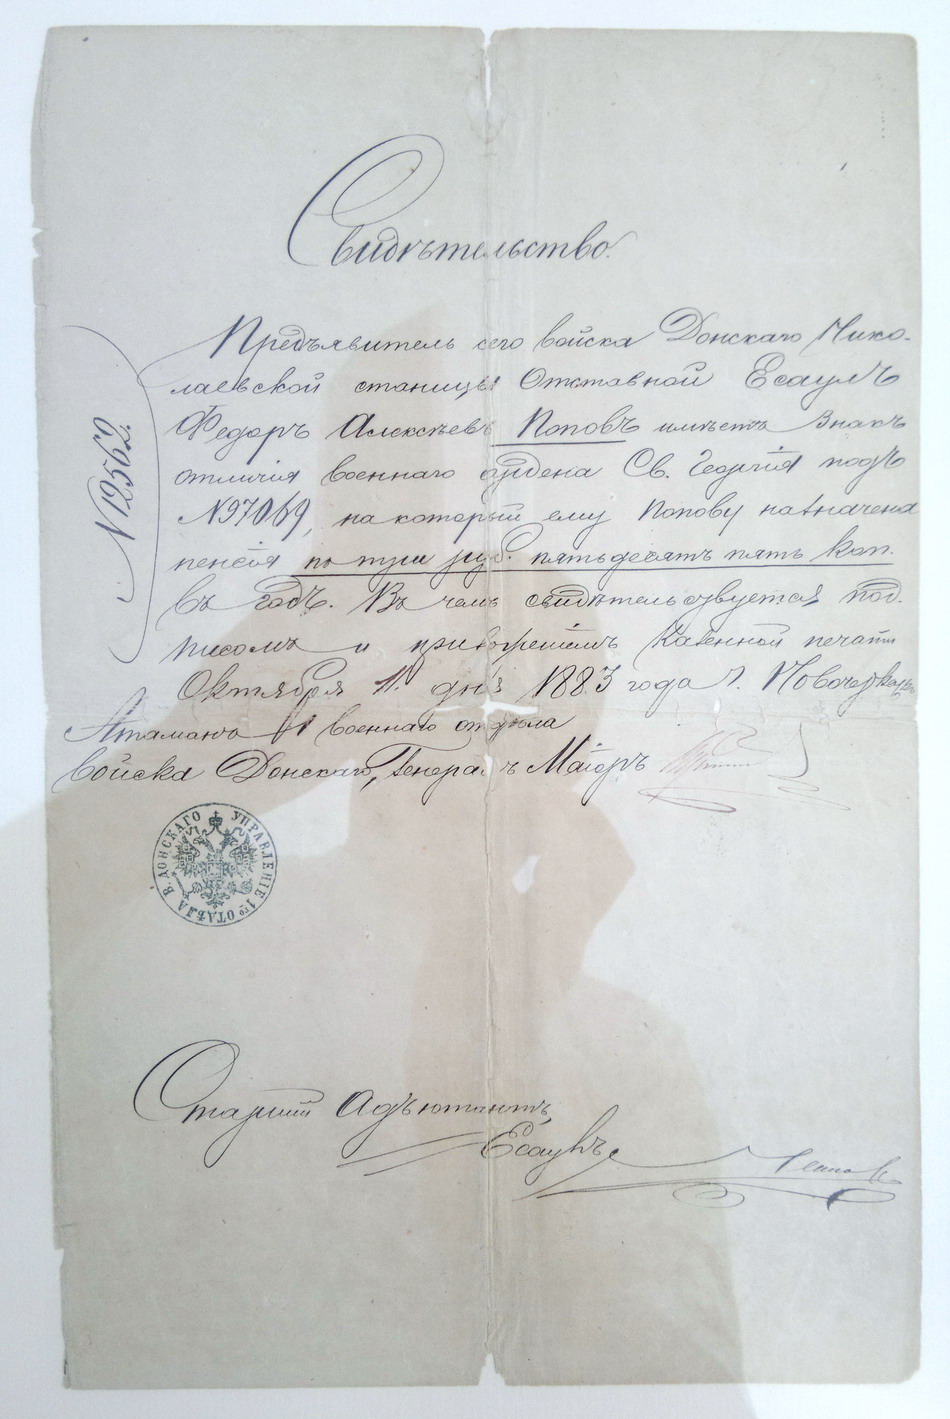 Свидѣтельство.
Предъявитель сего войска Донскаго Нико-
лаевской станицы Отставной Есаулъ
Федоръ Алексѣевъ Поповъ имѣетъ Знакъ
отличія военнаго ордена Св. Георгія подъ
№97069, на который ему Попову назначена
пенсія по три руб. пятьдесятъ пять коп.
въ годъ. Въ чемъ свидѣтельствуется под-
писомъ и приложеніемъ казенной печати
Октября 11 дня 1883 года г. Новочеркаскъ
№12562.
Атаманъ 1 военнаго отдѣла
Войска Донскаго, Генералъ Маіоръ
УПРАВЛЕНІЕ 1го ОТДѢЛА В. ДОНСКАГО
Старшій Адъютантъ,
Есаулъ